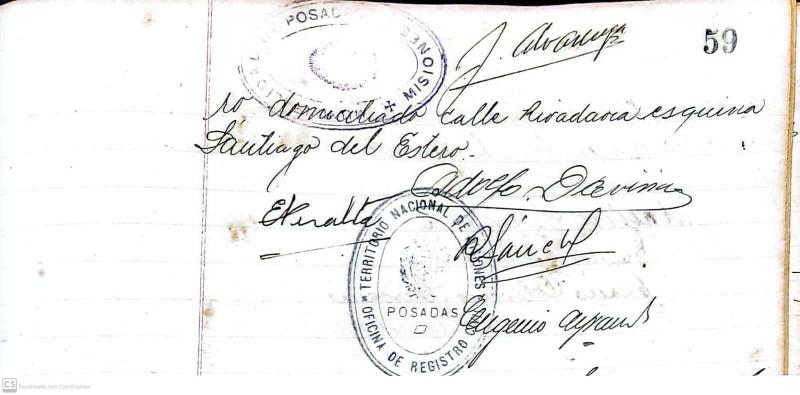 59
POSADAS MISIONES
ro domiciliado calle Rivadavia esquina
Santiago del Estero.
Adolfo
EPeralta
Sánch
TERRITORIO NACIONAL DE MISIONES
POSADAS
OFICINA DE REGISTRO
Eugenio
CS Escaneado con CamScanner